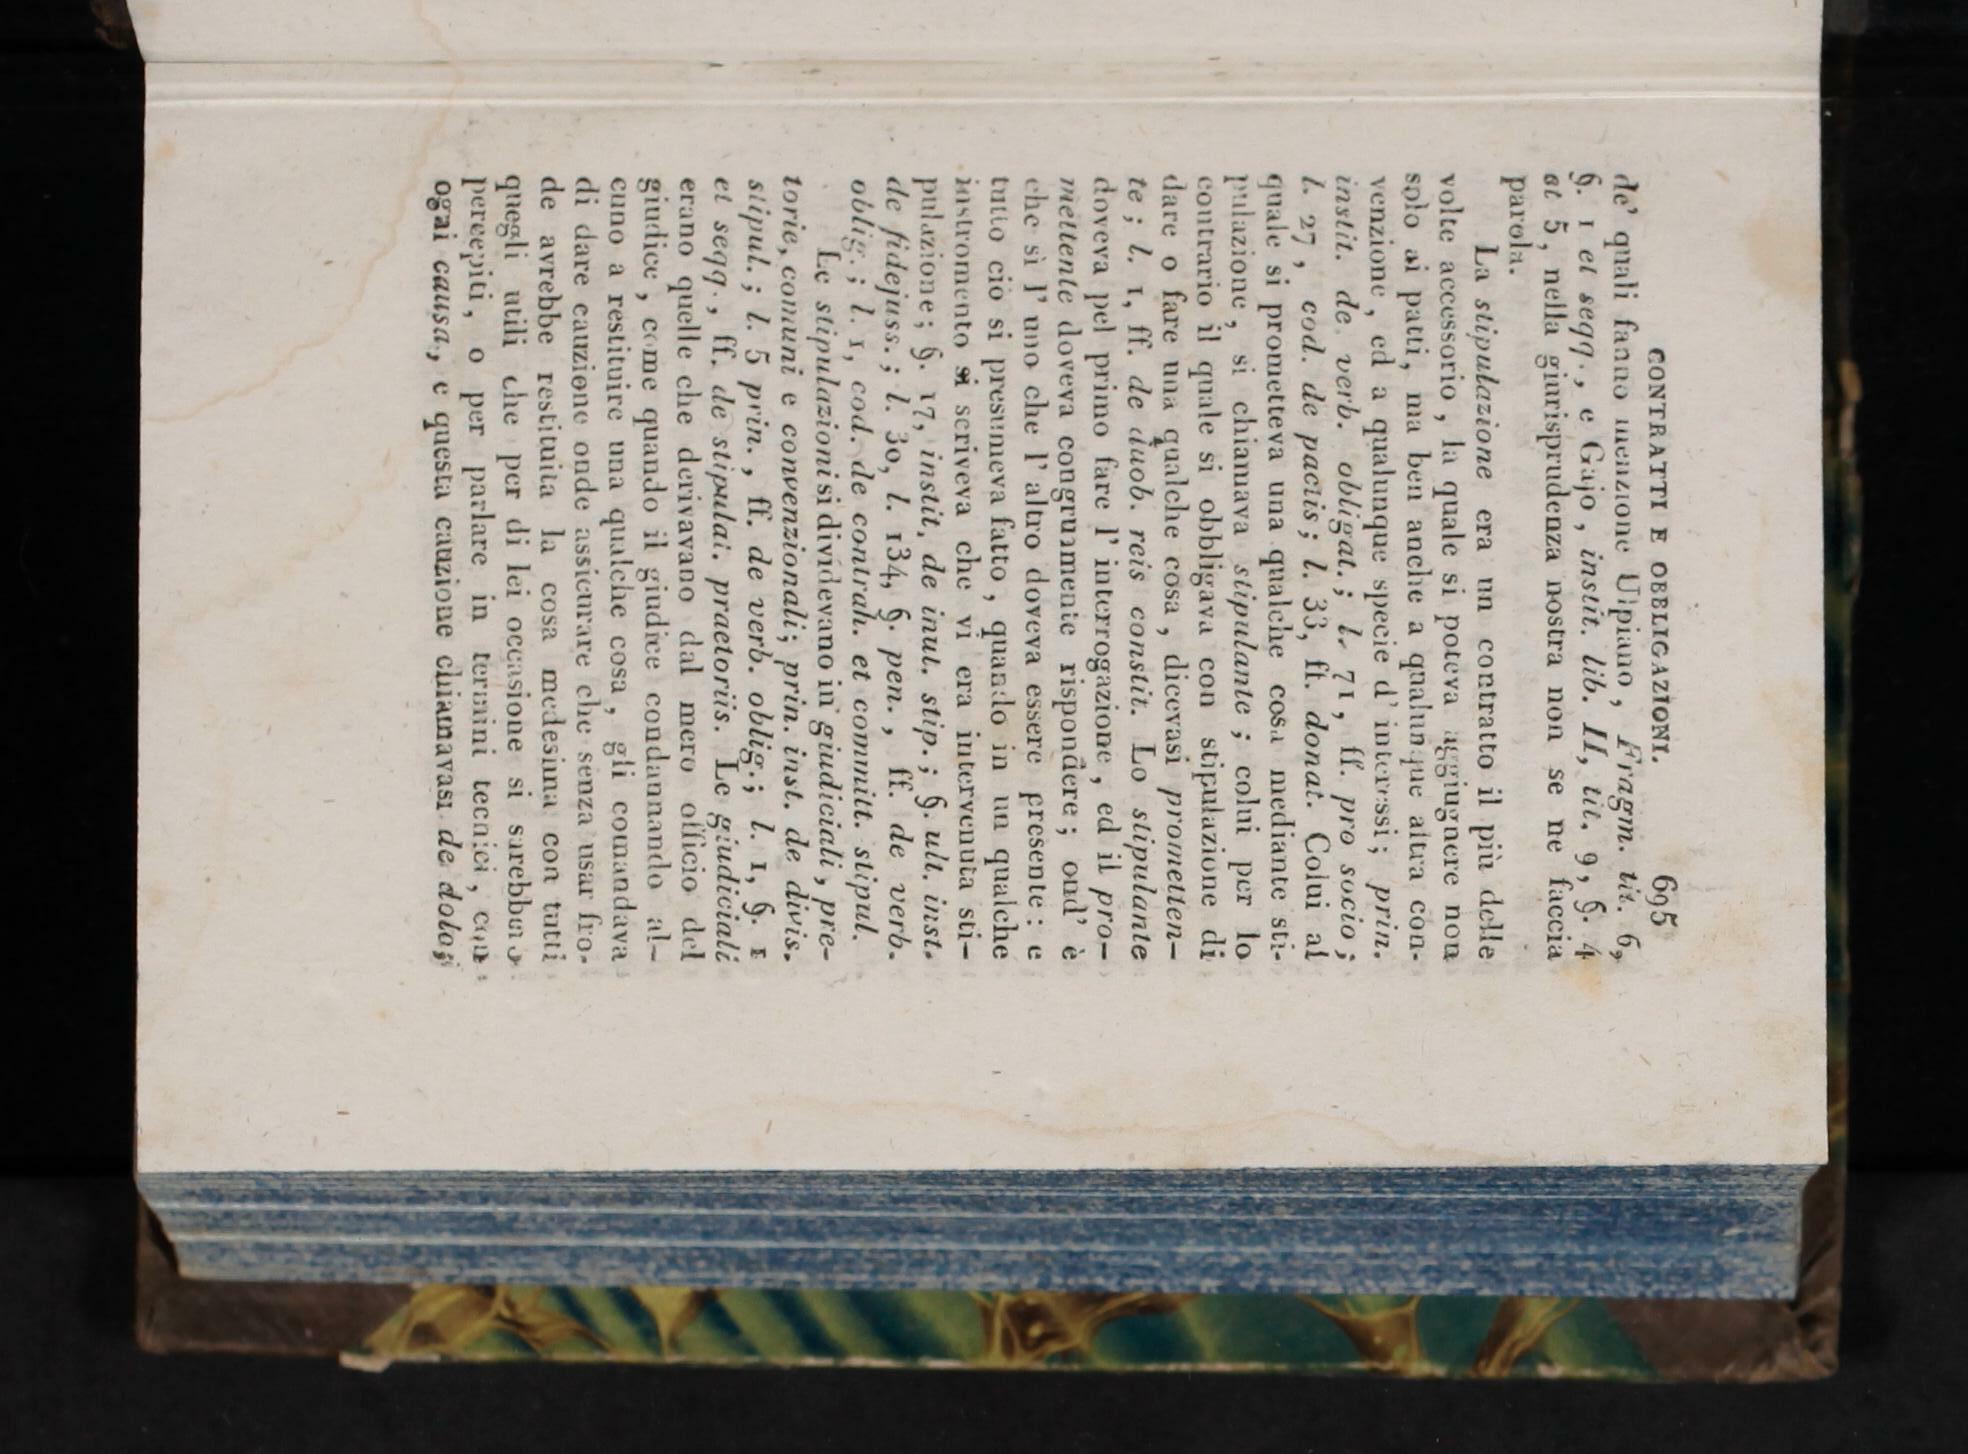 CONTRATTI E OBBLIGAZIONI. 695
de' quali fanno menzione Ulpiano, Fragm. tit. 6,
§. 1 et seqq., e Gajo, instit. lib. II, tit. 9, §. 4
et 5, nella giurisprudenza nostra non se ne faccia
parola.
La stipulazione era un contratto il più delle
volte accessorio, la quale si poteva aggiugnere non
solo ai patti, ma ben anche a qualunque altra con-
venzione, ed a qualunque specie d'interessi; prin.
instit. de verb. obligat.; l. 71, ff. pro socio;
l. 27, cod. de pactis; l. 33, ff. donat. Colui al
quale si prometteva una qualche cosa mediante sti-
pulazione, si chiamava stipulante; colui per lo
contrario il quale si obbligava con stipulazione di
dare o fare una qualche cosa, dicevasi prometten-
te; l. 1, ff. de duob. reis constit. Lo stipulante
doveva pel primo fare l'interrogazione, ed il pro-
mettente doveva congruamente rispondere; ond' è
che sì l'uno che l'altro doveva essere presente: e
tutto ciò si presumeva fatto, quando in un qualche
instromento si scriveva che vi era intervenuta sti-
pulazione; §. 17, instit. de inut. stip.; §. ult. inst.
de fidejuss.; l. 30, l. 134, §. pen., ff. de verb.
oblig.; l. 1, cod. de contrah. et committ. stipul.
Le stipulazioni si dividevano in giudiciali, pre-
torie, comuni e convenzionali; prin. inst. de divis.
stipul.; l. 5 prin., ff. de verb. oblig.; l. 1, §. 1
et seqq., ff. de stipulat. praetoriis. Le giudiciali
erano quelle che derivavano dal mero officio del
giudice, come quando il giudice condannando al-
cuno a restituire una qualche cosa, gli comandava
di dare cauzione onde assicurare che senza usar fro-
de avrebbe restituita la cosa medesima con tutti
quegli utili che per di lei occasione si sarebbero
percepiti, o per parlare in termini tecnici, cum
ogni causa, e questa cauzione chiamavasi de dolo;